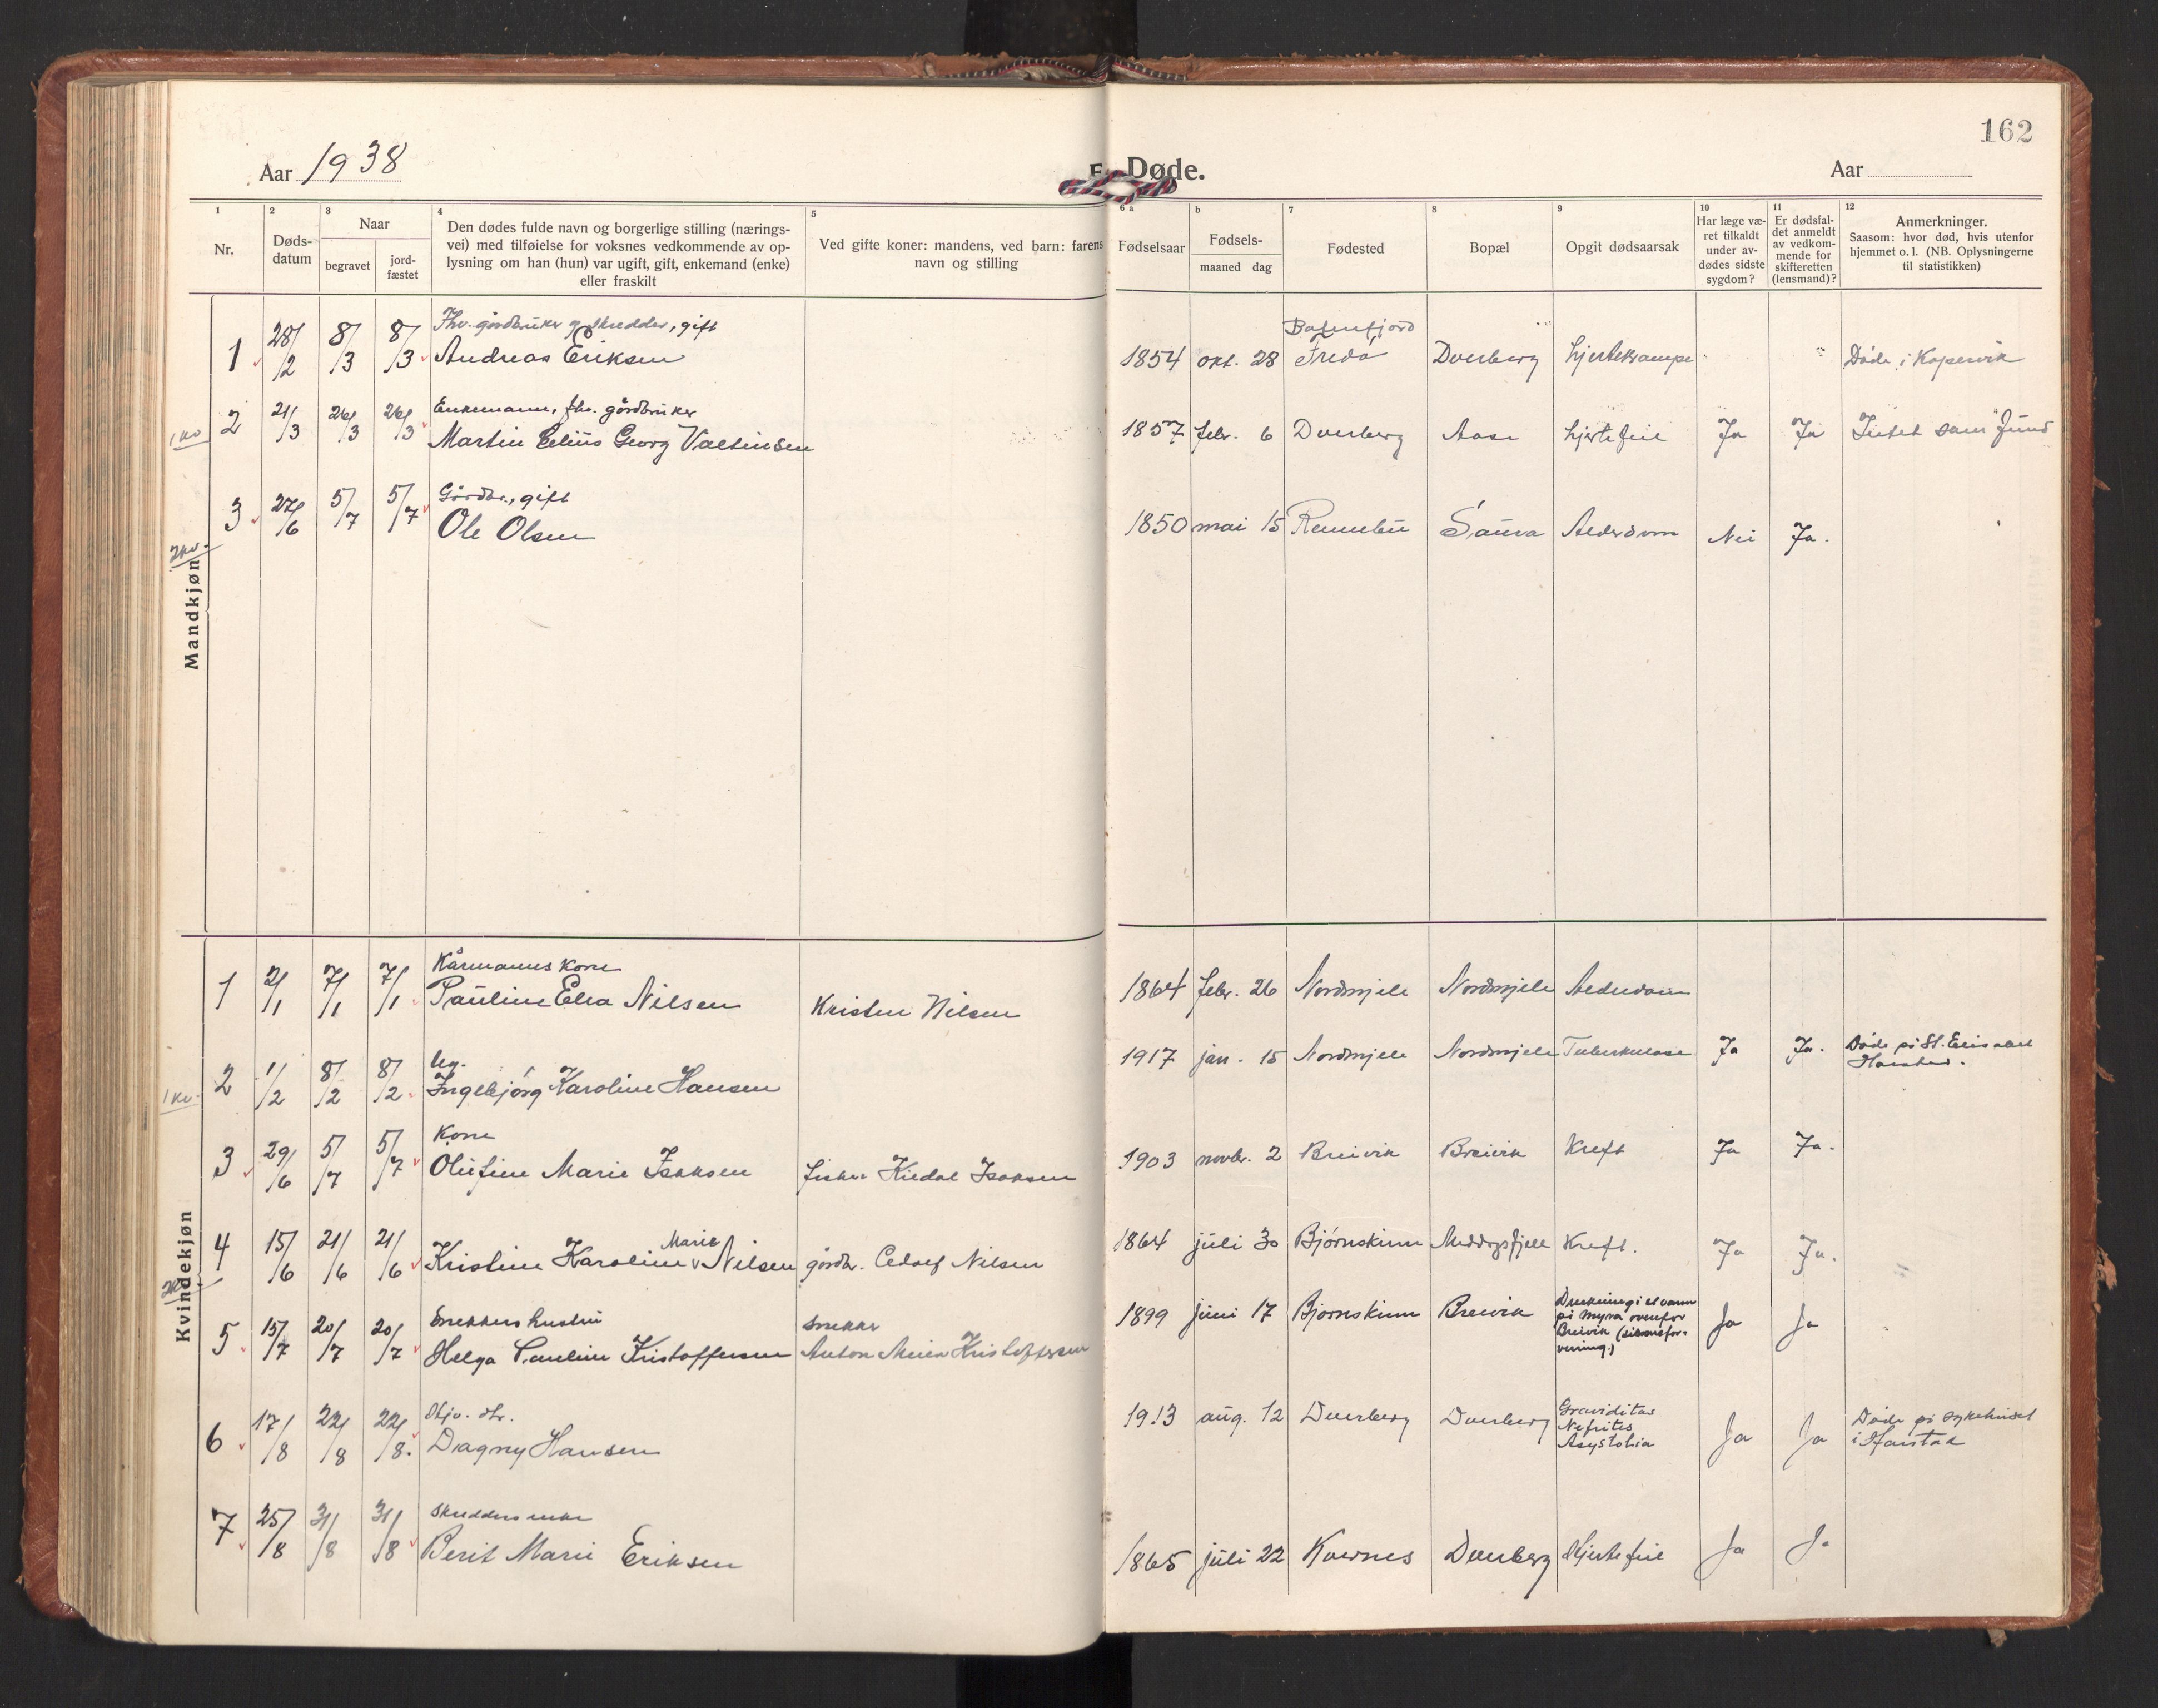 162
Aar 1938
F. Døde.
Aar
1
2
3
4
5
6 a
b
7
8
9
10
11
12
Nr.
Døds-
datum
Naar
begravet
jord-
fæstet
Den dødes fulde navn og borgerlige stilling (nærings-
vei) med tilføielse for voksnes vedkommende av op-
lysning om han (hun) var ugift, gift, enkemand (enke)
eller fraskilt
Ved gifte koner: mandens, ved barn: farens
navn og stilling
Fødselsaar
Fødsels-
maaned dag
Fødested
Bopæl
Opgit dødsaarsak
Har læge væ-
ret tilkaldt
under av-
dødes sidste
sygdom?
Er dødsfal-
det anmeldt
av vedkom-
mende for
skifteretten
(lensmand)?
Anmerkninger.
Saasom: hvor død, hvis utenfor
hjemmet o. l. (NB. Oplysningerne
til statistikken)
Mandkjøn
Fhv. gårdbruker og skredder, gift
Batnfjord
1 28/2 8/3 8/3 Andreas Eriksen
1854 okt. 28 Fredø Dverberg hjertekrampe Døde i Kopervik
Enkemann, fhv. gårdbruker
1 kv 2 21/3 26/3 26/3 Martin Edius Georg Valtinsen
1857 febr. 6 Dverberg Aase hjertefeil Ja Ja Intet sam fund
Gårdbr., gift
3 27/6 5/7 5/7 Ole Olsen
1850 mai 15 Rennebu Saura Alderdom Nei Ja.
2 kv.
Kvindekjøn
Kårmanns kone
1 2/1 7/1 7/1 Pauline Elea Nilsen Kristen Nilsen
1864 febr. 26 Nordmjele Nordmjele Alderdom
Ug.
1 kv. 2 1/2 8/2 8/2 Ingebjørg Karoline Hansen
1917 jan. 15 Nordmjele Nordmjele Tuberkulose Ja Ja. Døde på St. Elisabet
Harstad.
Kone
3 29/6 5/7 5/7 Olufine Marie Isaksen fisker Hildal Isaksen
1903 novbr. 2 Breivik Breivik Kreft Ja Ja.
Marie
4 15/6 21/6 21/6 Kristine Karoline Nilsen gårdbr. Edolf Nilsen
1864 juli 30 Bjørnskinn Middagsfjell Kreft. Ja Ja.
2 kv.
Snekkers hustru snekker
5 15/7 20/7 20/7 Helga Pauline Kristoffersen Anton Meier Kristoffersen
1899 juni 17 Bjørnskinn Breivik Drukning i et vann
på myra ovenfor
Breivik (sinnsfor-
virring.)
Ja Ja
6 17/8 22/8 22/8. Dagny Hansen
1913 aug. 12 Dverberg Dverberg Graviditas
Nefrites
Asystolia
Ja Ja Døde på sykehuset
i Harstad
Skredders enke
7 25/8 31/8 31/8 Berit Marie Eriksen
1865 juli 22 Kvernes Dverberg Hjertefeil Ja Ja